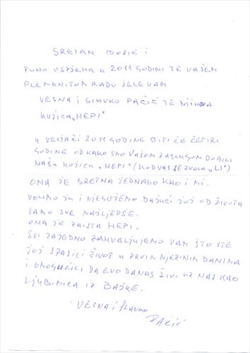 SRETAN BOŽIĆ I
PUNO USPJEHA U 2011 GODINI TE VAŠEM
PLEMENITOM RADU ŽELE VAM
VESNA I SLAVKO PAČIĆ TE NJIHOVA
KUJICA „HEPI"
U VELJAČI 2011 GODINE BITI ĆE ČETIRI
GODINE OD KAKO SMO VAŠOM ZASLUGOM DOBILI
NAŠU KUJICU „HEPI" (KOD VAS SE ZVALA „LI")
ONA JE SRETNA JEDNAKO KAO I MI.
VOLIMO JU I NJEGUJEMO DAJUĆI JOJ OD ŽIVOTA
SAMO SVE NAJLJEPŠE.
ONA JE ZAISTA HEPI.
SVI ZAJEDNO ZAHVALJUJEMO VAM ŠTO STE
JOJ SPASILI ŽIVOT U PRVIM NJEZINIM DANIMA
I OMOGUĆILI DA EVO DANAS ŽIVI UZ NAS KAO
LJUBIMICA IZ BAJKE.
VESNA I SLAVKO
PAČIĆ